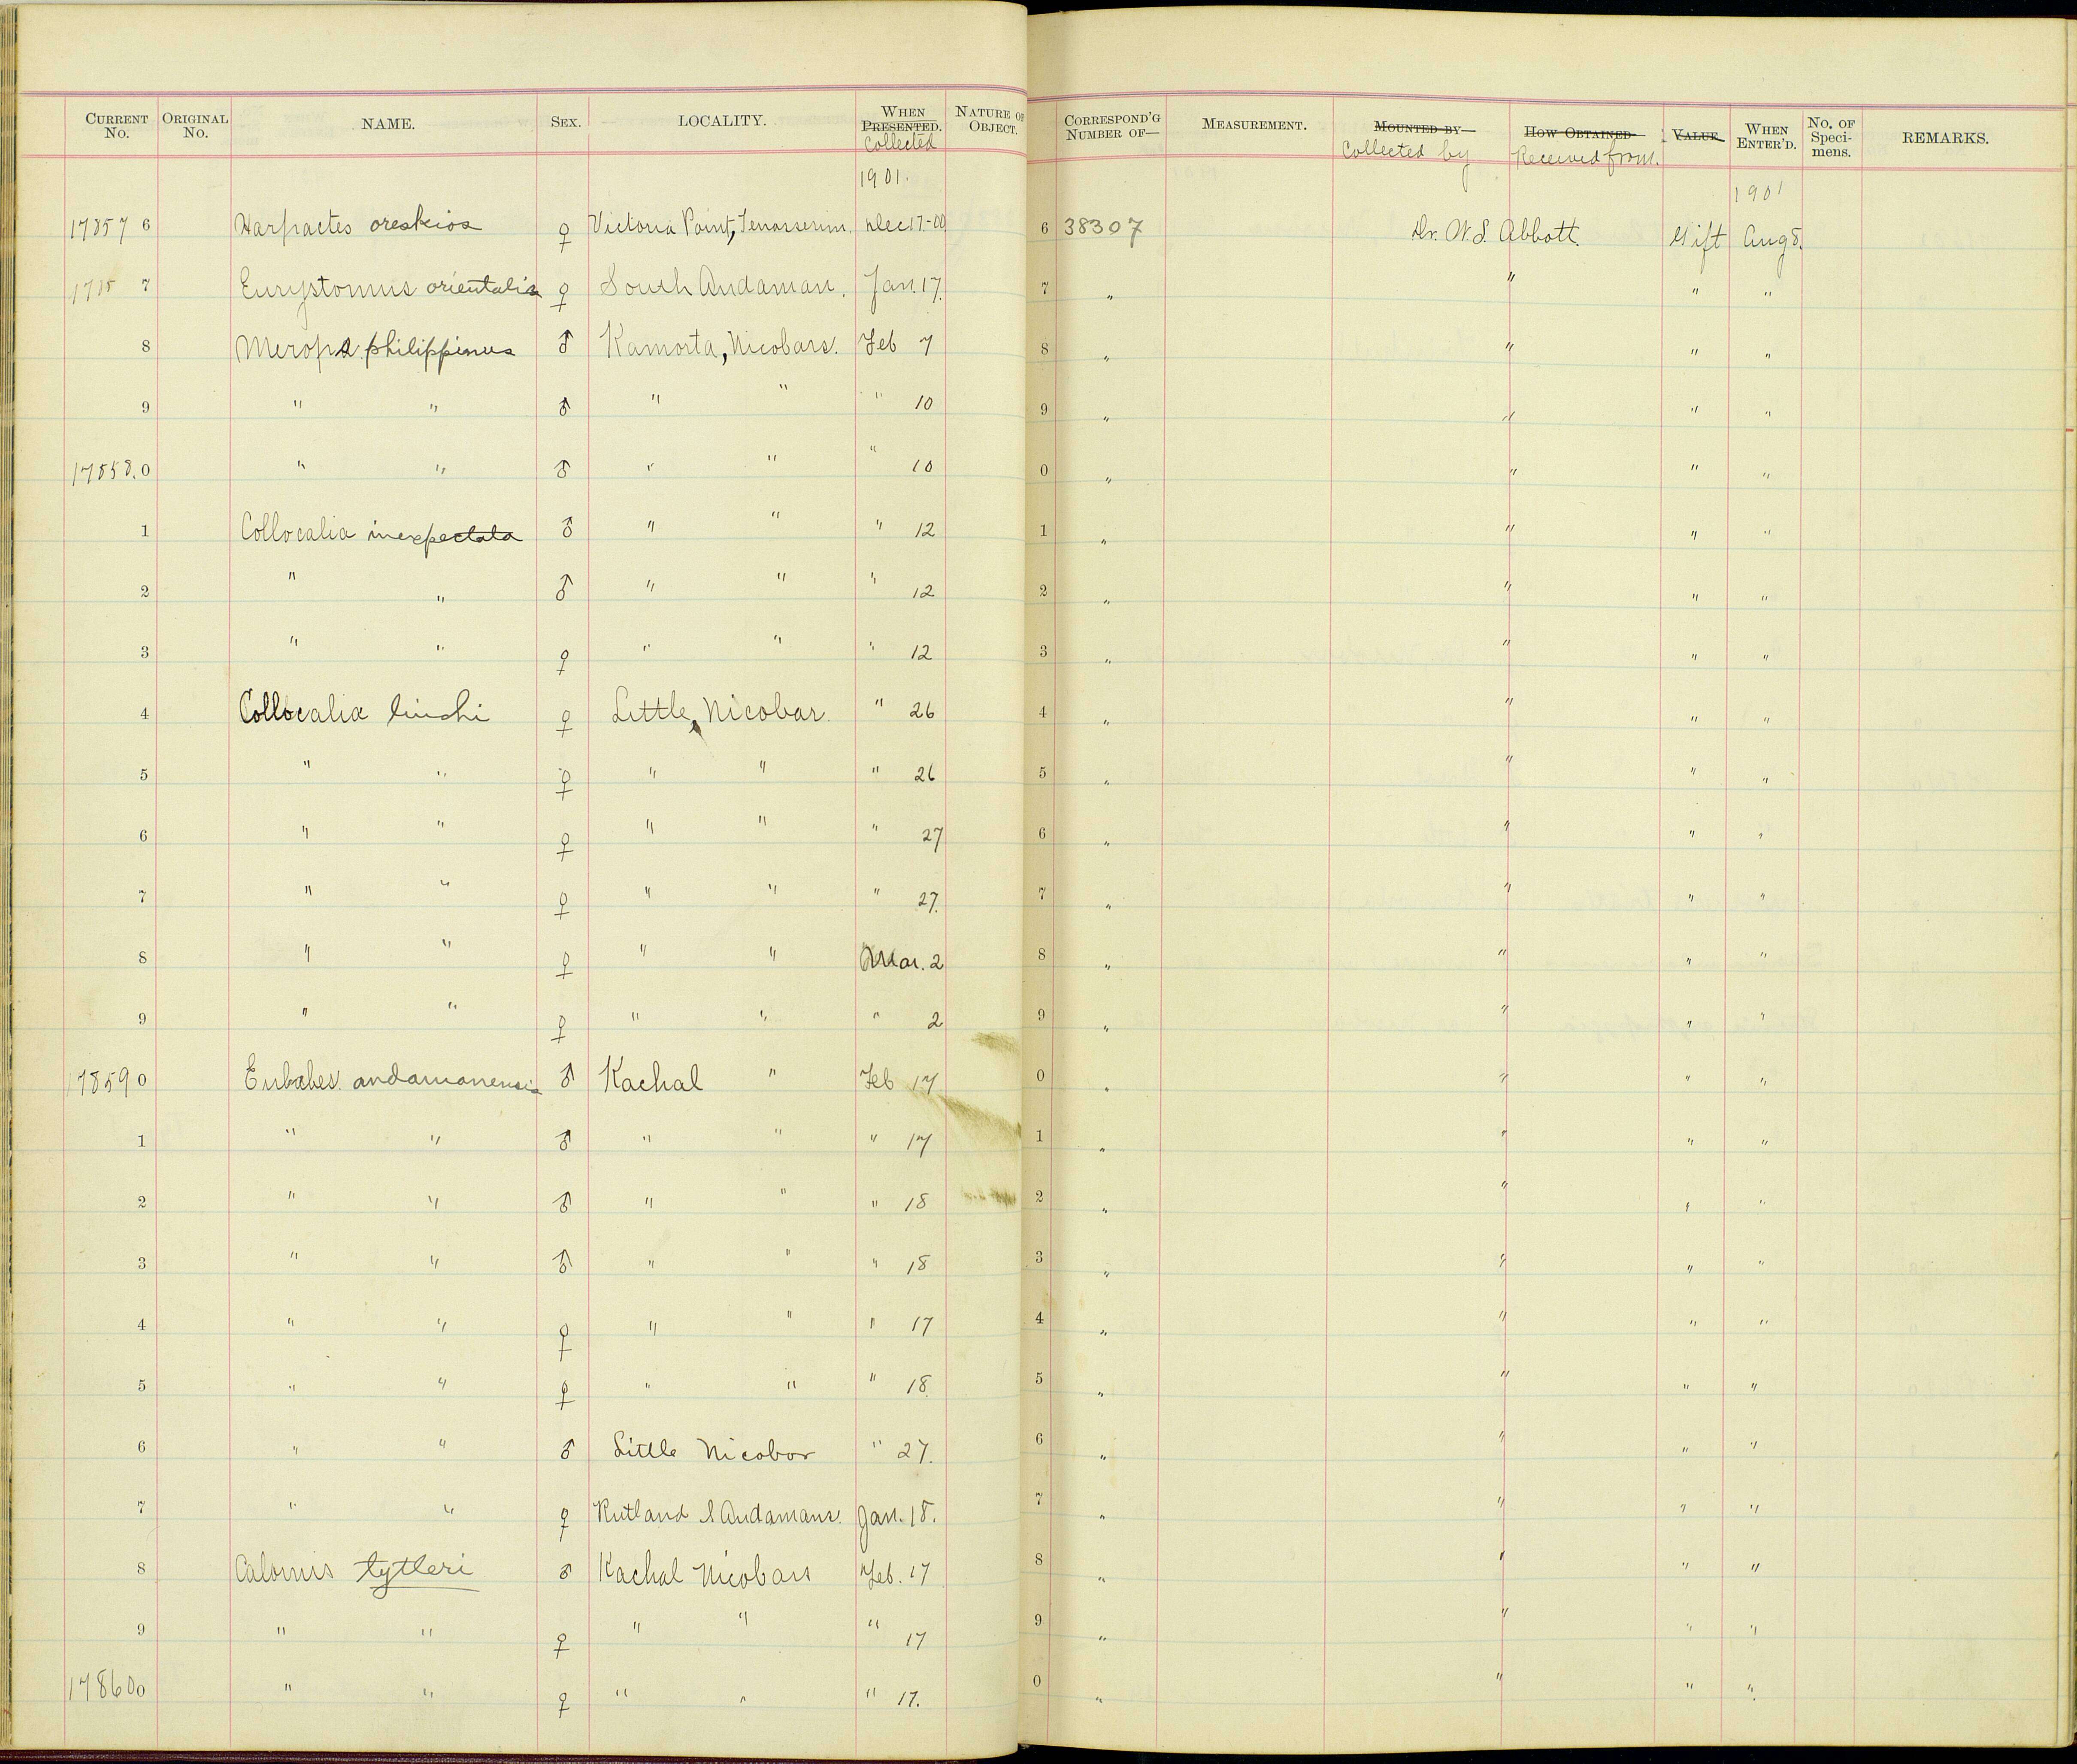 CURRENT No. ORIGINAL No. NAME. SEX. LOCALITY. WHEN PRESENTED. Collected NATURE OF OBJECT. CORRESPOND'G NUMBER OF— MEASUREMENT. MOUNTED BY— Collected by HOW OBTAINED— Received from. VALUE. WHEN ENTER'D. No. OF Speci-mens. REMARKS.
1901. 1901
17857 6 Harpactes oreskios ♀ Victoria Point, Tenasserim. Dec 17-00 6 38307 Dr. W. L. Abbott. Gift Aug 8.
7 Eurystomus orientalis ♀ South Andaman. Jan. 17. 7 " " " "
8 Merops philippinus ♂ Kamorta, Nicobars. Feb 7 8 " " " "
9 " " ♂ " " " 10 9 " " " "
17858. 0 " " ♂ " " " 10 0 " " " "
1 Collocalia inexpectata ♂ " " " 12 1 " " " "
2 " " ♂ " " " 12 2 " " " "
3 " " ♀ " " " 12 3 " " " "
4 Collocalia linchi ♀ Little, Nicobar. " 26 4 " " " "
5 " " ♀ " " " 26 5 " " " "
6 " " ♀ " " " 27 6 " " " "
7 " " ♀ " " " 27. 7 " " " "
8 " " ♀ " " Mar. 2 8 " " " "
9 " " ♀ " " " 2 9 " " " "
17859 0 Eulabes andamanensis ♂ Kachal " Feb 17 0 " " " "
1 " " ♂ " " " 17 1 " " " "
2 " " ♂ " " " 18 2 " " " "
3 " " ♂ " " " 18 3 " " " "
4 " " ♀ " " " 17 4 " " " "
5 " " ♀ " " " 18. 5 " " " "
6 " " ♂ Little Nicobar " 27. 6 " " " "
7 " " ♀ Rutland S Andamans. Jan. 18. 7 " " " "
8 Calornis tytleri ♂ Kachal Nicobars Feb. 17 8 " " " "
9 " " ♀ " " " 17 9 " " " "
17860 0 " " ♀ " " " 17. 0 " " " "